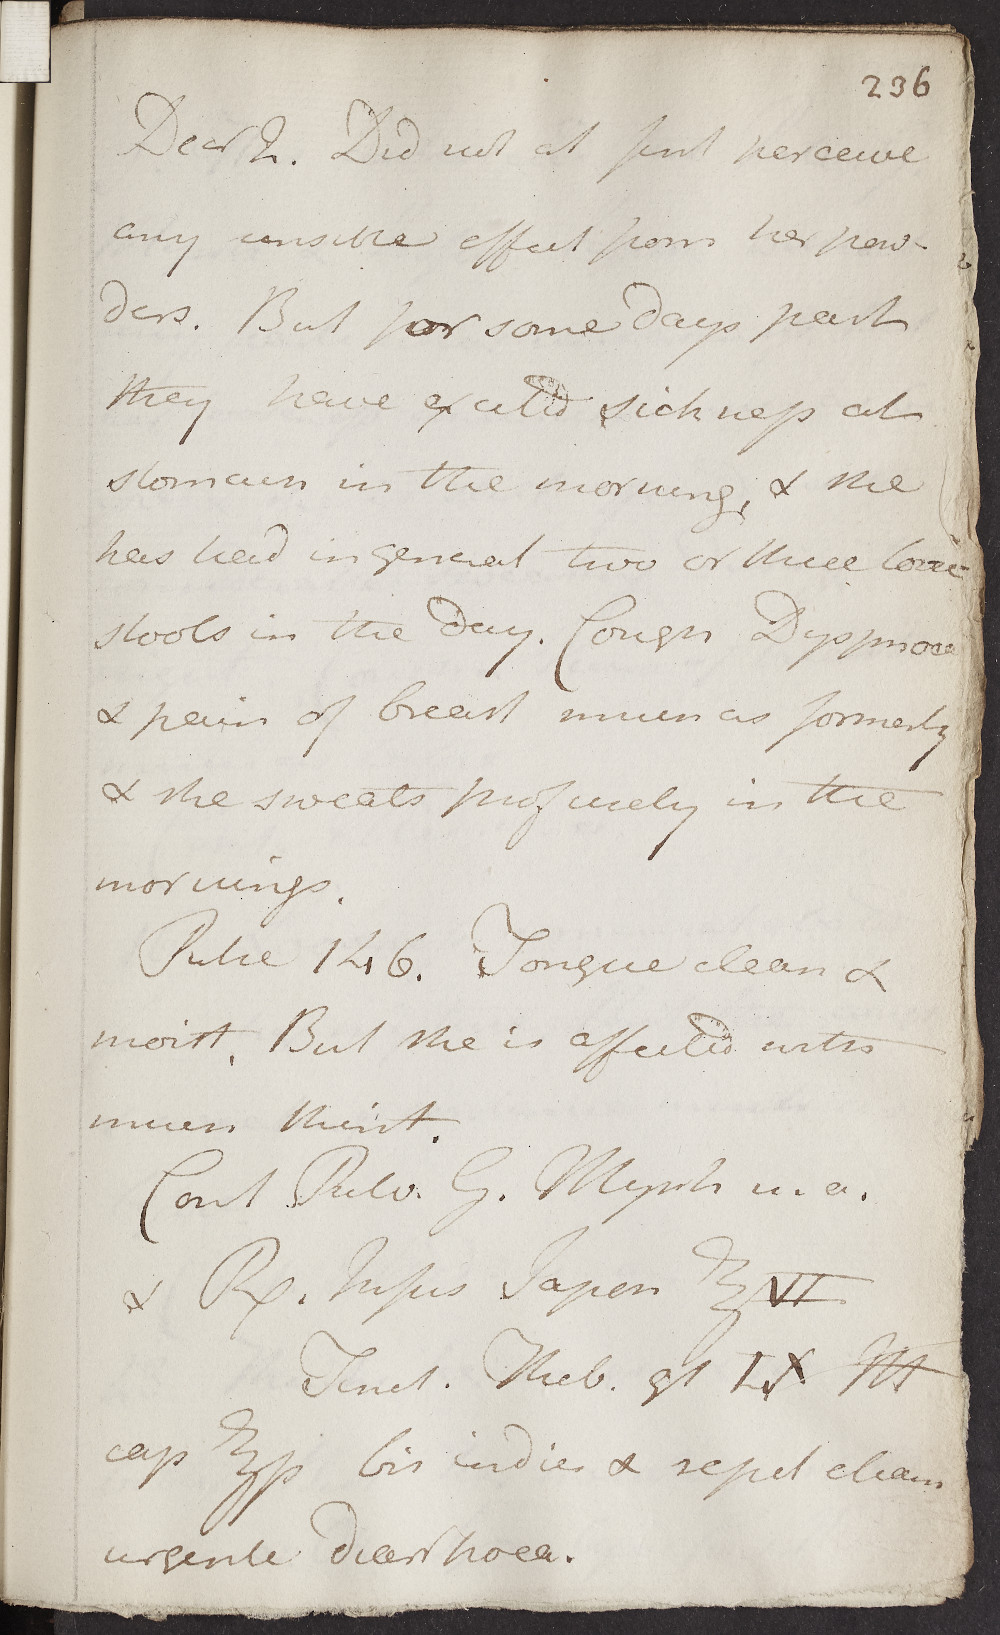 236
Dear 2. Did not at first perceive
any sensible effect from her pow-
ders. But for some days past
they have excited sickness at
stomach in the morning, & she
has had in general two or three loose
stools in the day. Cough Dyspnoea
& pain of breast much as formerly
& she sweats profusely in the
mornings.
Pulse 146. Tongue clean &
moist. But she is affected with
much thirst.
Cont Pulv. G. Myrrh u. a.
& Rx. Infus Japon ℥ VI
Tinct. Theb. gt LX M
cap ℥ſs bis indies & repet etiam
urgente diarrhoea.